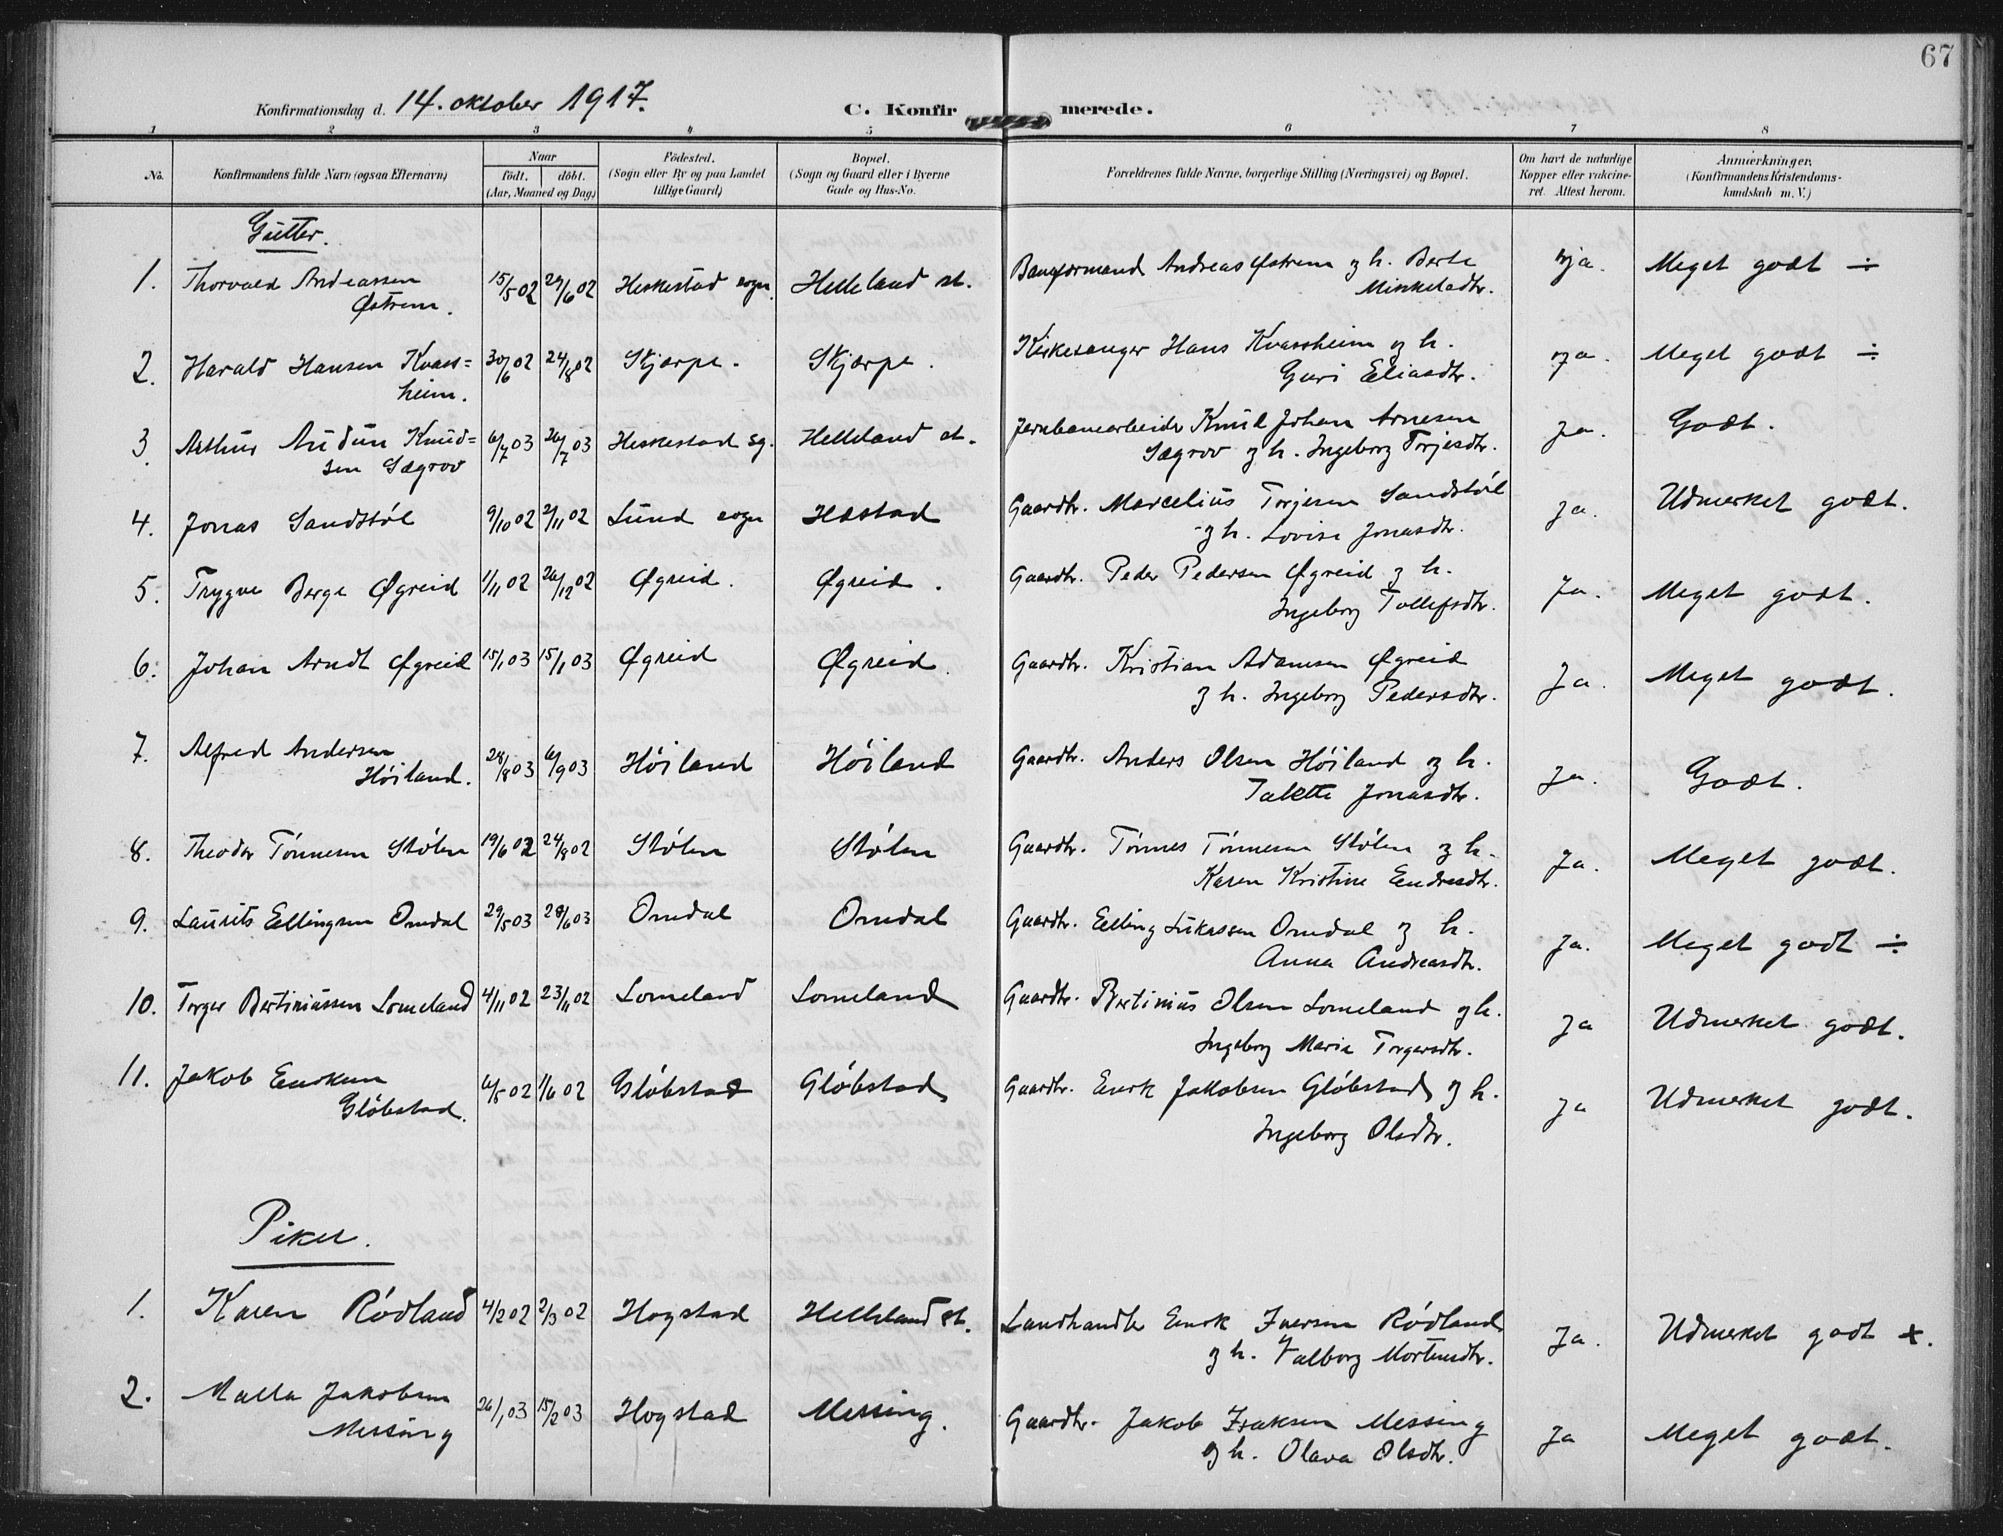 67
Konfirmationsdag d. 14. oktober 1917. C. Konfirmerede.
1 2 3 4 5 6 7 8
No.
Konfirmandens fulde Navn (ogsaa Efternavn)
Naar
födt. döbt.
(Aar, Maaned og Dag)
Födested.
(Sogn eller By og paa Landet
tillige Gaard)
Bopæl.
(Sogn og Gaard eller i Byerne
Gade og Hus-No.
Forældrenes fulde Navne, borgerlige Stilling (Næringsvei) og Bopæl.
Om havt de naturlige
Kopper eller vakcine-
ret. Attest herom.
Anmærkninger.
(Konfirmandens Kristendoms-
kundskab m. V.)
Gutter.
1. Thorvald Andreassen 15/5 02 29/6 02 Heskestad sogn Helleland st. Baneformand Andreas Østrem og h. Berte ja. Meget godt ÷
Østrem. Mikkelsdtr.
2. Harald Hansen Kvass= 30/6 02 24/8 02 Skjærpe. Skjærpe. Kirkesanger Hans Kvassheim og h. ja. Meget godt ÷
heim. Guri Eliasdtr.
3. Arthur Audun Knud= 6/7 03 26/7 03 Heskestad sg. Helleland st. Jernbanearbeider Knud Johan Arnesen ja. Godt.
sen Sægrov Sægrov og h. Ingeborg Torjesdtr.
4. Jonas Sandstøl 9/10 02 2/11 02 Lund sogn Hæstad Gaardbr. Marcelius Torjesen Sandstøl ja. Udmerket godt.
og h. Lovise Jonasdtr.
5. Trygve Berge Øgreid 1/11 02 26/12 02 Øgreid. Øgreid. Gaardbr. Peder Pedersen Øgreid og h. Ja. Meget godt.
Ingeborg Tollefsdtr.
6. Johan Arndt Øgreid 15/1 03 15/1 03 Øgreid Øgreid. Gaardbr. Kristian Adamsen Øgreid Ja. Meget godt.
og h. Ingeborg Pedersdtr.
7. Alfred Andersen 28/8 03 6/9 03 Høiland Høiland Gaardbr. Anders Olsen Høiland og h. Ja. Godt.
Høiland. Talette Jonasdtr.
8. Theodor Tønnesen Stølen 19/6 02 24/8 02 Stølen Stølen Gaardbr. Tønnes Tønnesen Stølen og h. Ja. Meget godt.
Karen Kristine Endresdtr.
9. Laurits Ellingsen Omdal 29/5 03 28/6 03 Omdal Omdal Gaardbr. Elling Lukassen Omdal og h. Ja. Meget godt ÷
Anna Andreasdtr.
10. Torger Bertiniussen Lomeland 4/11 02 23/11 02 Lomeland Lomeland Gaardbr. Bertinius Olsen Lomeland og h. Ja Udmerket godt.
Ingeborg Marie Torgersdtr.
11. Jakob Enoksen 6/5 02 1/6 02 Gløbstad Gløbstad Gaardbr. Enok Jakobsen Gløbstad og h. Ja Udmerket godt.
Gløbstad. Ingeborg Olsdtr.
Piker.
1. Karen Rødland 4/2 02 2/3 02 Hogstad Helleland st. Landhandler Enok Iversen Rødland Ja. Udmerket godt x.
og h. Valborg Mortensdtr.
2. Malla Jakobsen 26/1 03 15/2 03 Hogstad Messing. Gaardbr. Jakob Isaksen Messing Ja Meget godt.
Messing og h. Olava Olsdtr.